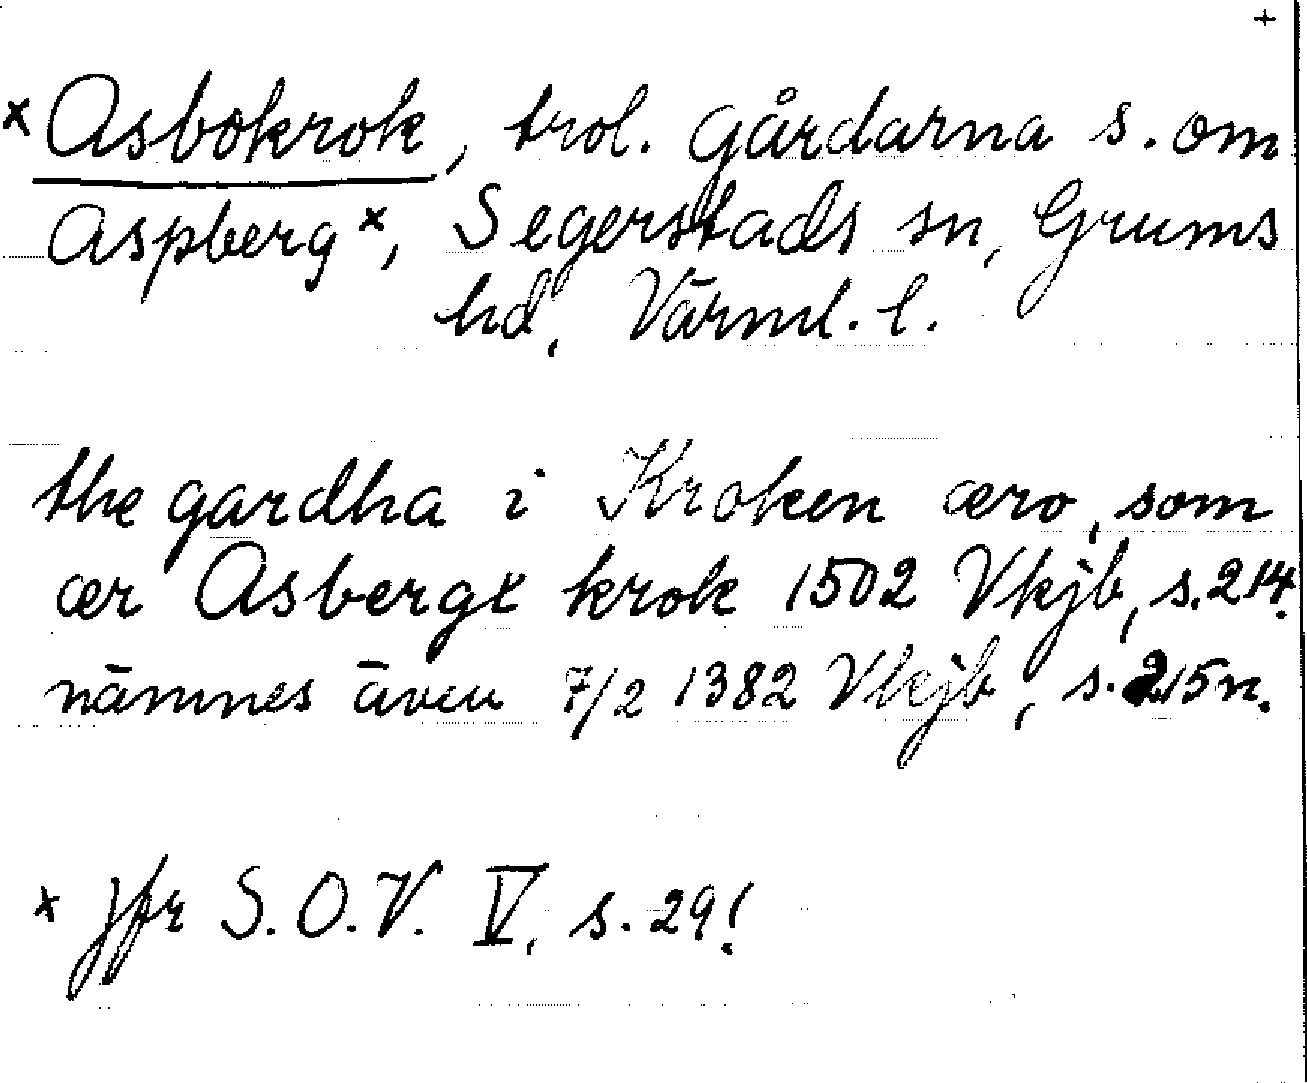 +
x Asbokrok, trol. gårdarna s. om
Aspberg x, Segerstads sn, Grums
hd, Värml. l.
the gardha i Kroken æro, som
ær Asbergx krok 1502 Vkjb, s. 214.
nämnes även 7/2 1382 Vkjb, s. 215 n.
x jfr S.O.V. V, s. 29!